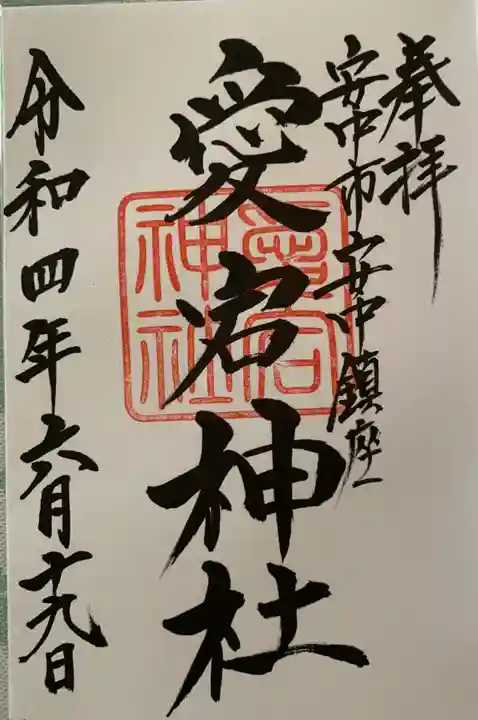 奉拝
安中市安中鎮座
愛宕神社
愛宕神社
令和四年六月十九日